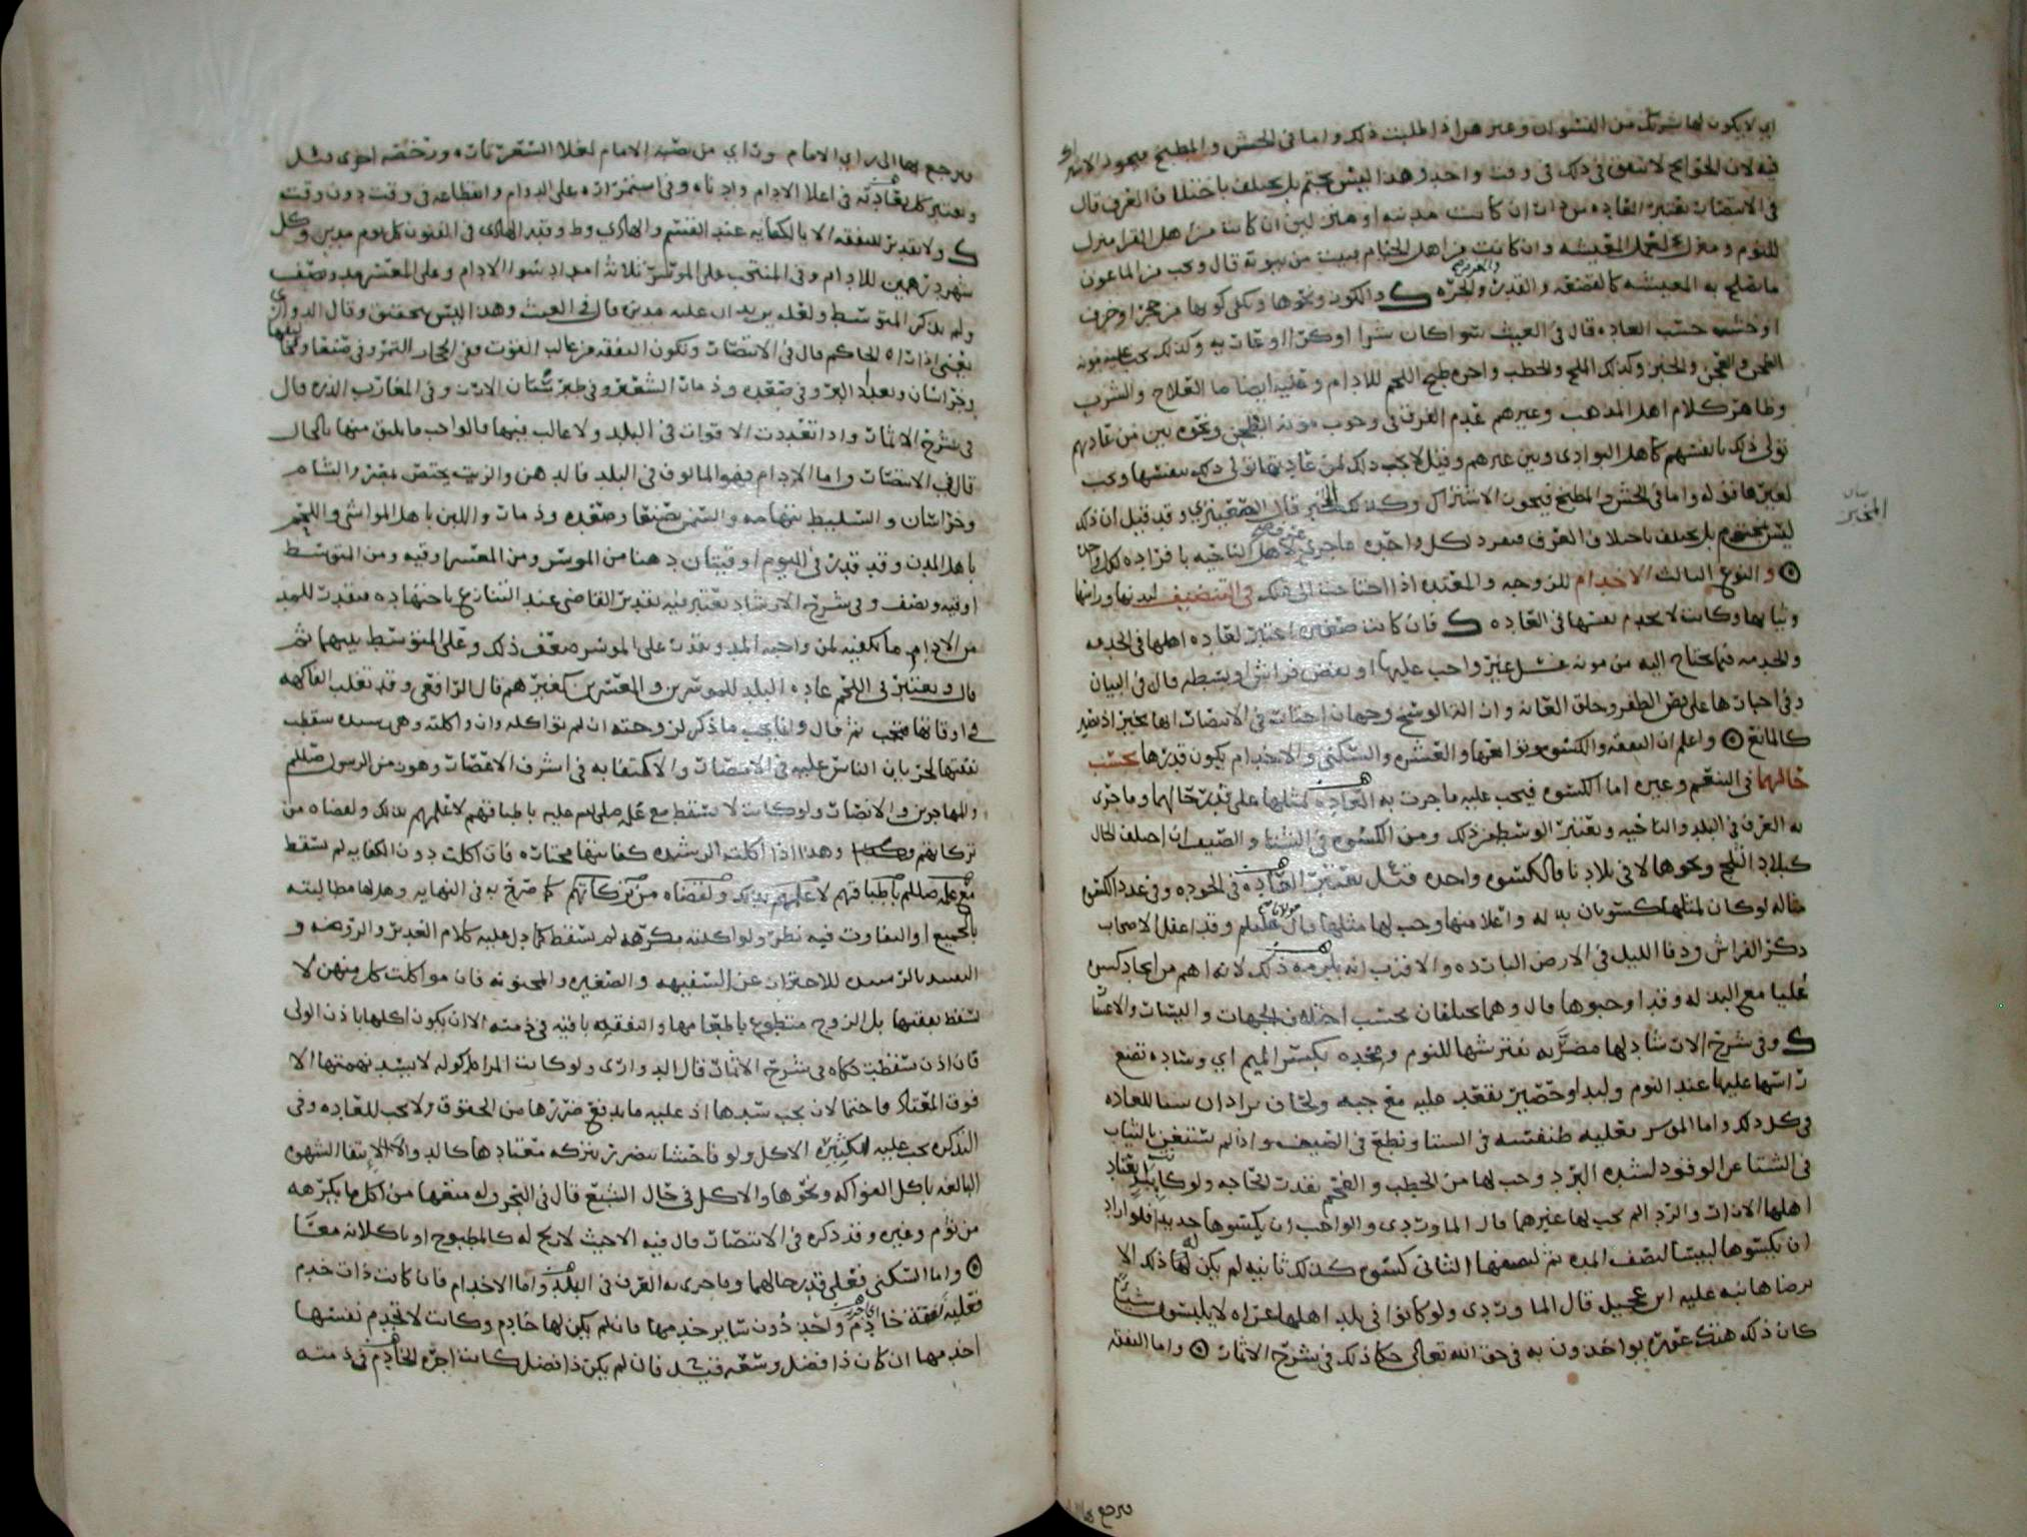 اي لا يكون لها شريك من النسوان وغيرهن اذا طلبت ذلك واما في الحش والمطبخ فيجوز الاشتراك
فيه لان الحوائج لا تتفق في ذلك في وقت واحد وهذا ليس بحتم بل يختلف باختلاف العرف قال
في الانتصار تعتبر العاده من دار ان كانت مدنيه او منزلين ان كانت من اهل القرا منزل
للنوم ومنزل لعمل المعيشه وان كانت من اهل الخيام فبيت من بيوته قال ويجب من الماعون
ما يصلح به المعيشه كالقصعه والقدر والجره ك والكوز ونحوها ويكفي كونها من حجر او خزف
او خشب حسب العاده قال في الغيث سوا كان شرا او كرا او عاريه وكذلك يجب عليه مونة
الطحن والعجن والخبز وكذلك الملح والحطب واجره طبخ اللحم للادام وعليه ايضا ما العلاج والشرب
وظاهر كلام اهل المذهب وغيرهم عدم الفرق في وجوب مونة الطحن ونحوه بين من عادتهم
تولي ذلك بانفسهم كاهل البوادي وبين غيرهم وقيل لا يجب ذلك لمن عادتها تولي ذلك بنفسها ويجب
لغيرها قوله واما في الحش والمطبخ فيجوز الاشتراك وكذلك المخبز قال الصعيتري وقد قيل ان ذلك
ليس بمحتوم بل يختلف باختلاف العرف فيفرد لكل واحده ما جرى عرف اهل الناحيه بافراده لكل واحده
⊙ والنوع الثالث الاخدام للزوجه والمعتده اذا احتاجت الى ذلك في التنضيف لبدنها وراسها
وثيابها وكانت لا تخدم نفسها في العاده ك فان كانت صغيره اعتبر لعاده اهلها في الخدمه
والخدمه فيما تحتاج اليه من مونه غسل غير واجب عليها او نفض فراش او بسطه قال في البيان
وفي اجبارها على قص الظفر وحلق العانه وازالة الوسخ وجهان اختار في الانتصار انها تجبر اذ تصير
كالمانع ⊙ واعلم ان النفقه والكسوه وتوابعها والعشره والسكنى والاخدام يكون قدرها بحسب
حالهما في التنعم وغيره اما الكسوه فيجب عليه ما جرت به العاده لمثلها على قدر حالهما وما جرى
به العرف في البلد والناحيه ويعتبر الوسط من ذلك ومن الكسوه في الشتا والصيف ان اختلف الحال
كبلاد الثلج ونحوها لا في بلادنا فالكسوه واحده قيل تعتبر العاده في الجوده وفي عدد الكسوه
قاله لو كان لمثلها كسوتان بذله واعلا منها وجب لها مثلها قال عليلم وقد اغفل الاصحاب
ذكر الفراش ودفا الليل في الارض البارده والاقرب انه يلزمه ذلك لانه اهم من ايجاد كسوه
عليا مع البذله وقد اوجبوها قال وهما يختلفان بحسب اختلاف الجهات واليسار والاعسار
ك وفي شرح الارشاد لها مضربه تفترشها للنوم ومخده بكسر الميم اي وساده تضع
راسها عليها عند النوم ولبد او حصير تقعد عليه مع جبه ولحاف يزادان شتا للعاده
في كل ذلك واما الموسر فعليه طنفسه في الشتا ونطع في الصيف واذا لم تستغن بالثياب
في الشتا عن الوقود لشده البرد وجب لها من الحطب والفحم بقدر الحاجه ولو كانت تعتاد
اهلها الازار والردا لم يجب لها غيرهما قال الماوردي والواجب ان يكسوها جديدا فلو اراد
ان يكسوها لبيسا لنصف المده ثم لنصفها الثاني كسوه كذلك ثانيه لم يكن له ذلك الا
برضاها نبه عليه ابن عجيل قال الماوردي ولو كانوا في بلد اهلها عراه لا يلبسون شيئا
كان ذلك هتك عوره يواخذون به في حق الله تعالى حكا ذلك في شرح الاثمار ⊙ واما النفقه
بيان
المخبز
فيرجع بها
فيرجع بها الى راي الامام وراي من نصبه الامام لغلا السعر تاره ورخصه اخرى
ويعتبر كل بعادته في اعلا الادام وادناه وفي استمراره على الدوام وانقطاعه في وقت دون وقت
ك ولا تقدير للنفقه الا بالكفايه عند القسم والهادي وط وقدر الهادي في الفنون كل يوم مدين وكل
شهر درهمين للادام وفي المنتخب على الموسر ثلاثة امداد سوا الادام وعلى المعسر مد ونصف
ولم يذكر المتوسط ولعله يريد ان عليه مدين قال في الغيث وهذا ليس بتحقيق وقال الدواري
يعني اذا راه الحاكم قال في الانتصار وتكون النفقه من غالب القوت ففي الحجاز التمر وفي صنعا ونجد
وخراسان وبغداد البر وفي صعده وذمار الشعير وفي طبرستان الارز وفي المغارب الذره قال
في شرح الاثمار واذا تعددت الاقوات في البلد ولا غالب فيها فالواجب ما يليق منها بالحال
قال في الانتصار واما الادام فهو المالوف في البلد فالدهن والزيت يختص بمصر والشام
وخراسان والسليط بتهامه والسمن بصنعا وصعده وذمار واللبن باهل المواشي واللحم
باهل المدن وقد قدر في اليوم اوقيتان دهنا من الموسر ومن المعسر اوقيه ومن المتوسط
اوقيه ونصف وفي شرح الارشاد يعتبر فيه تقدير القاضي عند التنازع باجتهاده فيقدر للمد
من الادام ما يكفيه لمن واجبه المد ويقدر على الموسر ضعف ذلك وعلى المتوسط بينهما ثم
قال ويعتبر في اللحم عاده البلد للموسرين والمعسرين كغيرهم قال الرافعي وقد تغلب الفاكهه
في اوقاتها فتجب ثم قال وانما يجب ما ذكر لزوجته ان لم تواكله وان واكلته وهي رشيده سقطت
نفقتها لجريان الناس عليه في الاعصار والاكتفا به في اشرف الاعصار وهو زمن الرسول صللم
والمهاجرين والانصار ولو كانت لا تسقط مع علمه صلى الله عليه باطباقهم لاعلمهم بذلك ولقضاه من
تركاتهم وهذا اذا اكلت الرشيده كفايتها مختاره فان اكلت دون الكفايه لم تسقط
مع علمه صللم باطباقهم لاعلمهم بذلك ولقضاه من تركاتهم كما صرح به في النهايه وهل لها مطالبته
بالجميع او التفاوت فيه نظر ولو اكلته مكرهه لم تسقط كما دل عليه كلام العزيز والروضه و
التقييد بالرشيده للاحتراز عن السفيهه والصغيره والمجنونه فان مواكلت كل منهن لا
تسقط نفقتها بل الزوج متطوع باطعامها والنفقه باقيه في ذمته الا ان يكون اكلها باذن الولي
فان اذن سقطت حكاه في شرح الاثمار قال الدواري ولو كانت المراه اكوله لا يسد نهمتها الا
فوق المعتاد فاحتمالان يجب سدها اذ عليه ما يدفع ضررها من الحقوق ولا يجب للعاده وفي
التذكره يجب عليه لكثيره الاكل ولو فاحشا بتضرر بتركه معتادها كالدوا لا لايفا الشهوه
البالغه باكل الفواكه ونحوها والاكل في حال الشبع قال في البحر وله منعها من اكل ما يكرهه
من ثوم وغيره وقد ذكره في الانتصار قال فيه الا حيث لا ريح له كالمطبوخ او ياكلانه معا
⊙ واما السكنى فعلى قدر حالهما وما جرى به العرف في البلد واما الاخدام فان كانت ذات خدم
فعليه نفقة خادم واحد دون ساير خدمها فان لم يكن لها خادم وكانت لا تخدم نفسها
اخدمها ان كان ذا فضل وسعه فيـ ـد فان لم يكن ذا فضل كانت اجره الخادم في ذمته